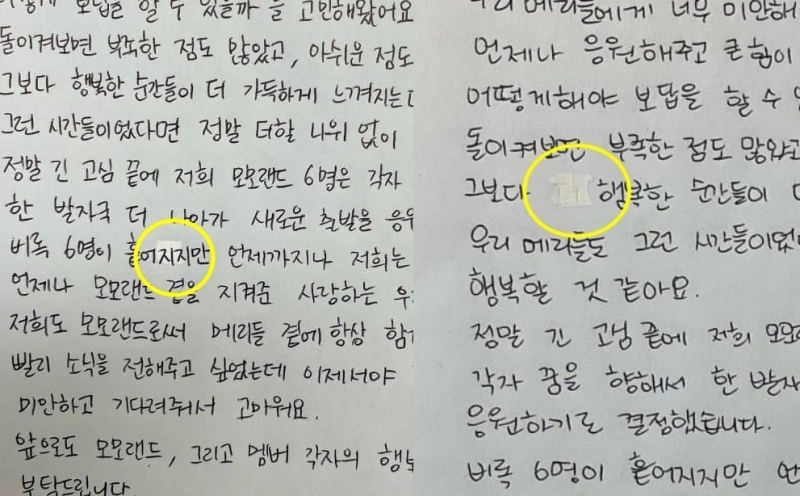 보답을 할 수 있을까 를 고민해왔어요
돌이켜보면 부족한 점도 많았고, 아쉬운 점도
그보다 행복한 순간들이 더 가득하게 느껴지는
그런 시간들이였다면 정말 더할 나위 없이
정말 긴 고심 끝에 저희 모모랜드 6명은 각자
한 발자국 더 나아가 새로운 출발을 응
비록 6명이 흩어지지만 언제까지나 저희는
언제나 모모랜드 곁을 지켜준 사랑하는 우
저희도 모모랜드로써 메리들 곁에 항상 함
빨리 소식을 전해주고 싶었는데 이제서야
미안하고 기다려줘서 고마워요.
앞으로도 모모랜드, 그리고 멤버 각자의 행
부탁드립니다
우리 메리들에게 너무 미안해
언제나 응원해주고 큰 힘이
어떻게해야 보답을 할 수
돌이켜보면 부족한 점도 많았고
그보다 행복한 순간들이
우리 메리들도 그런 시간들이였
행복할 것 같아요.
정말 긴 고심 끝에 저희 모모
각자 꿈을 향해서 한 발자
응원하기로 결정했습니다.
비록 6명이 흩어지지만 언